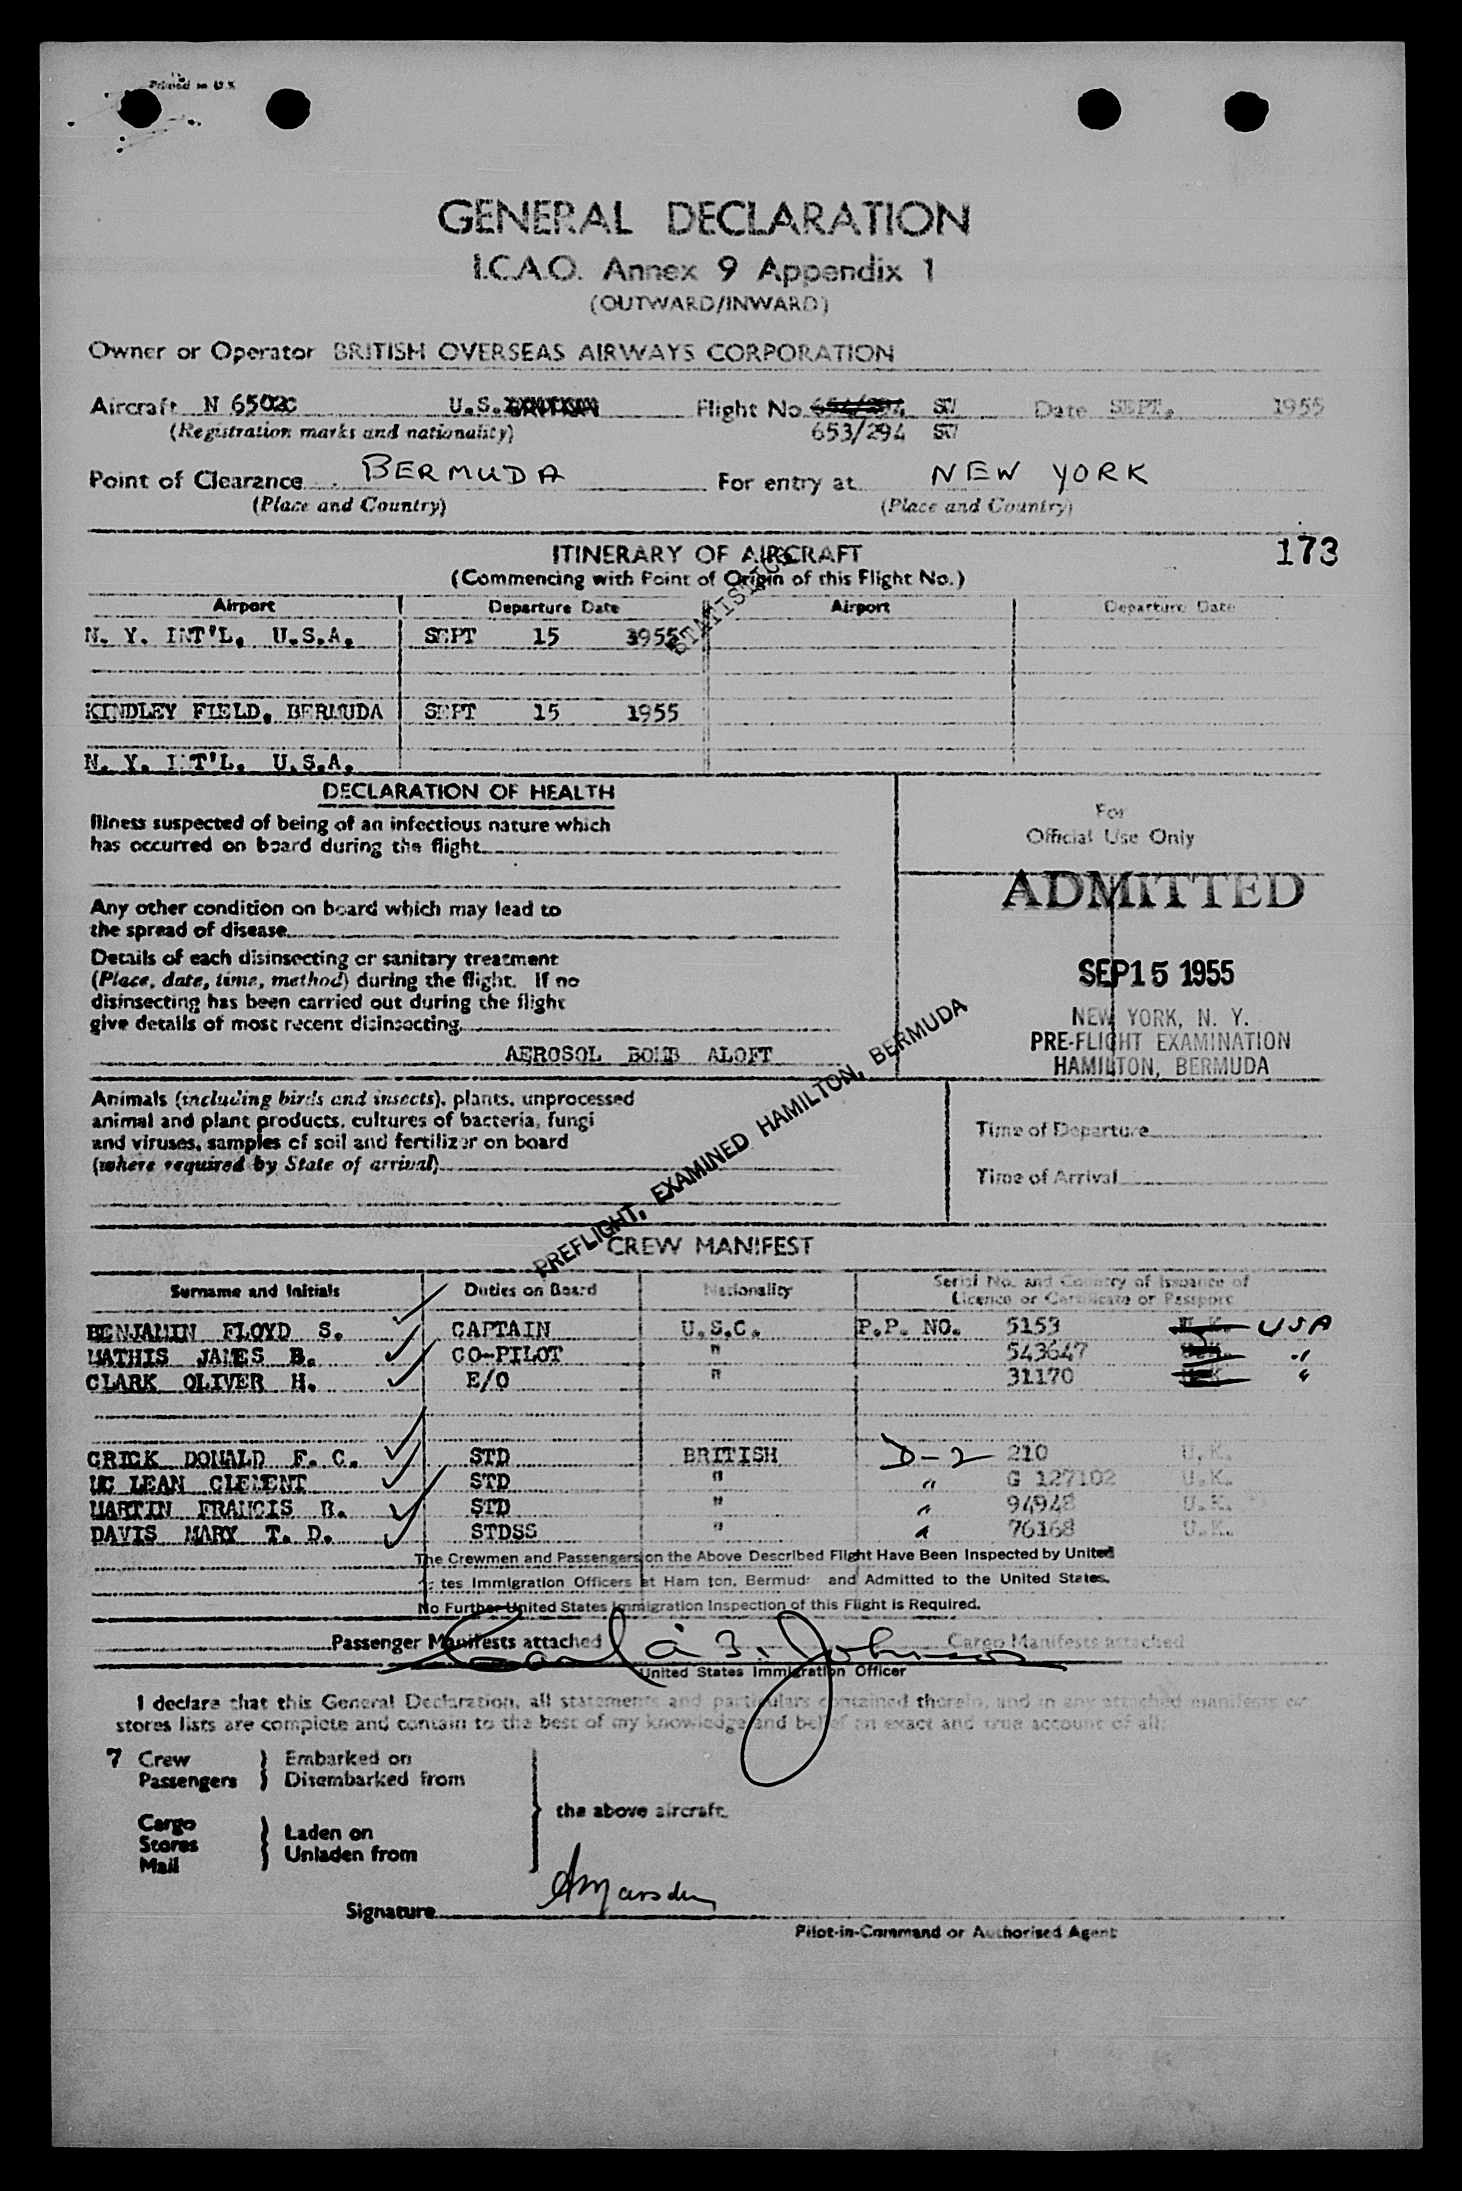 Printed in U.K.
GENERAL DECLARATION
I.C.A.O. Annex 9 Appendix 1
(OUTWARD/INWARD)
Owner or Operator BRITISH OVERSEAS AIRWAYS CORPORATION
Aircraft N 6502C U.S. Flight No. 654/294 SW Date SEPT. 1955
(Registration marks and nationality) 653/294 SW
Point of Clearance BERMUDA For entry at NEW YORK
(Place and Country) (Place and Country)
173
ITINERARY OF AIRCRAFT
(Commencing with Point of Origin of this Flight No.)
STATISTICS
Airport Departure Date Airport Departure Date
N. Y. INT'L, U.S.A. SEPT 15 1955
KINDLEY FIELD, BERMUDA SEPT 15 1955
N. Y. INT'L, U.S.A.
DECLARATION OF HEALTH
Illness suspected of being of an infectious nature which
has occurred on board during the flight
Any other condition on board which may lead to
the spread of disease
Details of each disinsecting or sanitary treatment
(Place, date, time, method) during the flight. If no
disinsecting has been carried out during the flight
give details of most recent disinsecting
AEROSOL BOMB ALOFT
For
Official Use Only
ADMITTED
SEP 15 1955
NEW YORK, N. Y.
PRE-FLIGHT EXAMINATION
HAMILTON, BERMUDA
Animals (including birds and insects), plants, unprocessed
animal and plant products, cultures of bacteria, fungi
and viruses, samples of soil and fertilizer on board
(where required by State of arrival)
Time of Departure
Time of Arrival
PREFLIGHT, EXAMINED HAMILTON, BERMUDA
CREW MANIFEST
Surname and Initials Duties on Board Nationality Serial No. and Country of Issuance of
Licence or Certificate or Passport
BENJAMIN FLOYD S. CAPTAIN U.S.C. P.P. NO. 5153 U.K. USA
MATHIS JAMES B. CO-PILOT " 543647 "
CLARK OLIVER H. E/O " 31170 U.K. "
CRICK DONALD F. C. STD BRITISH D-2 210 U.K.
MC LEAN CLEMENT STD " " G 127102 U.K.
MARTIN FRANCIS R. STD " " 94948 U.K.
DAVIS MARY T. D. STDSS " " 76168 U.K.
The Crewmen and Passengers on the Above Described Flight Have Been Inspected by United
tes Immigration Officers at Ham ton, Bermud and Admitted to the United States.
No Further United States Immigration Inspection of this Flight is Required.
Passenger Manifests attached Cargo Manifests attached
Johnson
United States Immigration Officer
I declare that this General Declaration, all statements and particulars contained therein, and in any attached manifests or
stores lists are complete and contain to the best of my knowledge and belief an exact and true account of all:
7 Crew } Embarked on
Passengers } Disembarked from
the above aircraft.
Cargo
Stores } Laden on
Mail Unladen from
Signature Marsden
Pilot-in-Command or Authorised Agent